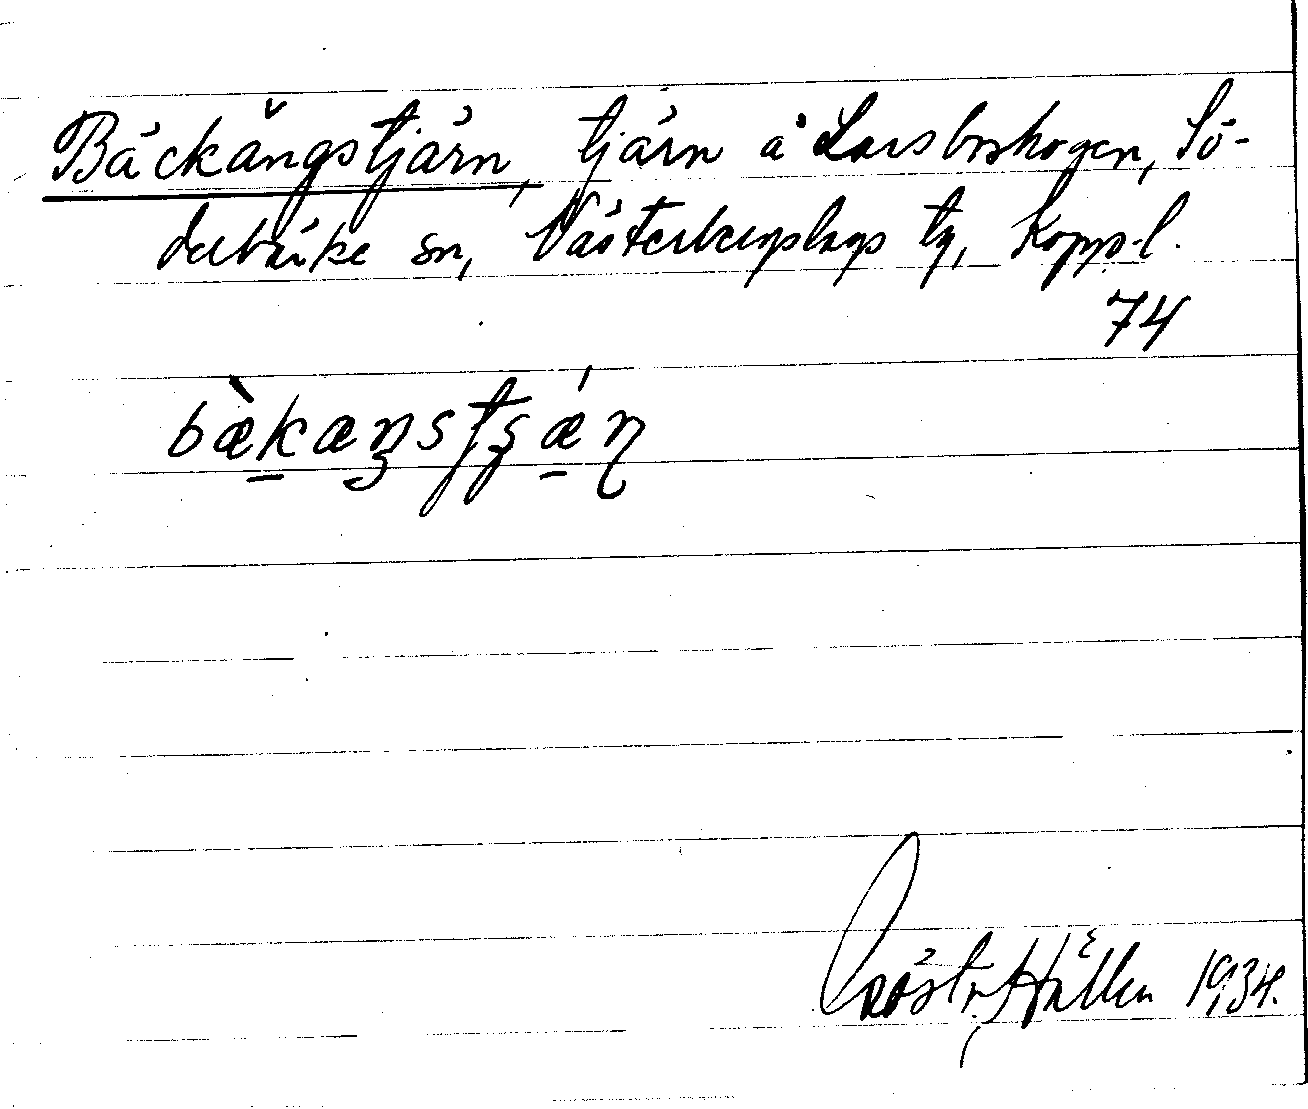 Bäckängstjärn, tjärn å Larsboskogen, Sö-
derbärke sn, Västerbergslags tg, Kopp.l.
74
bæ̀kæŋstʂǽɳ
Hällen 1934.